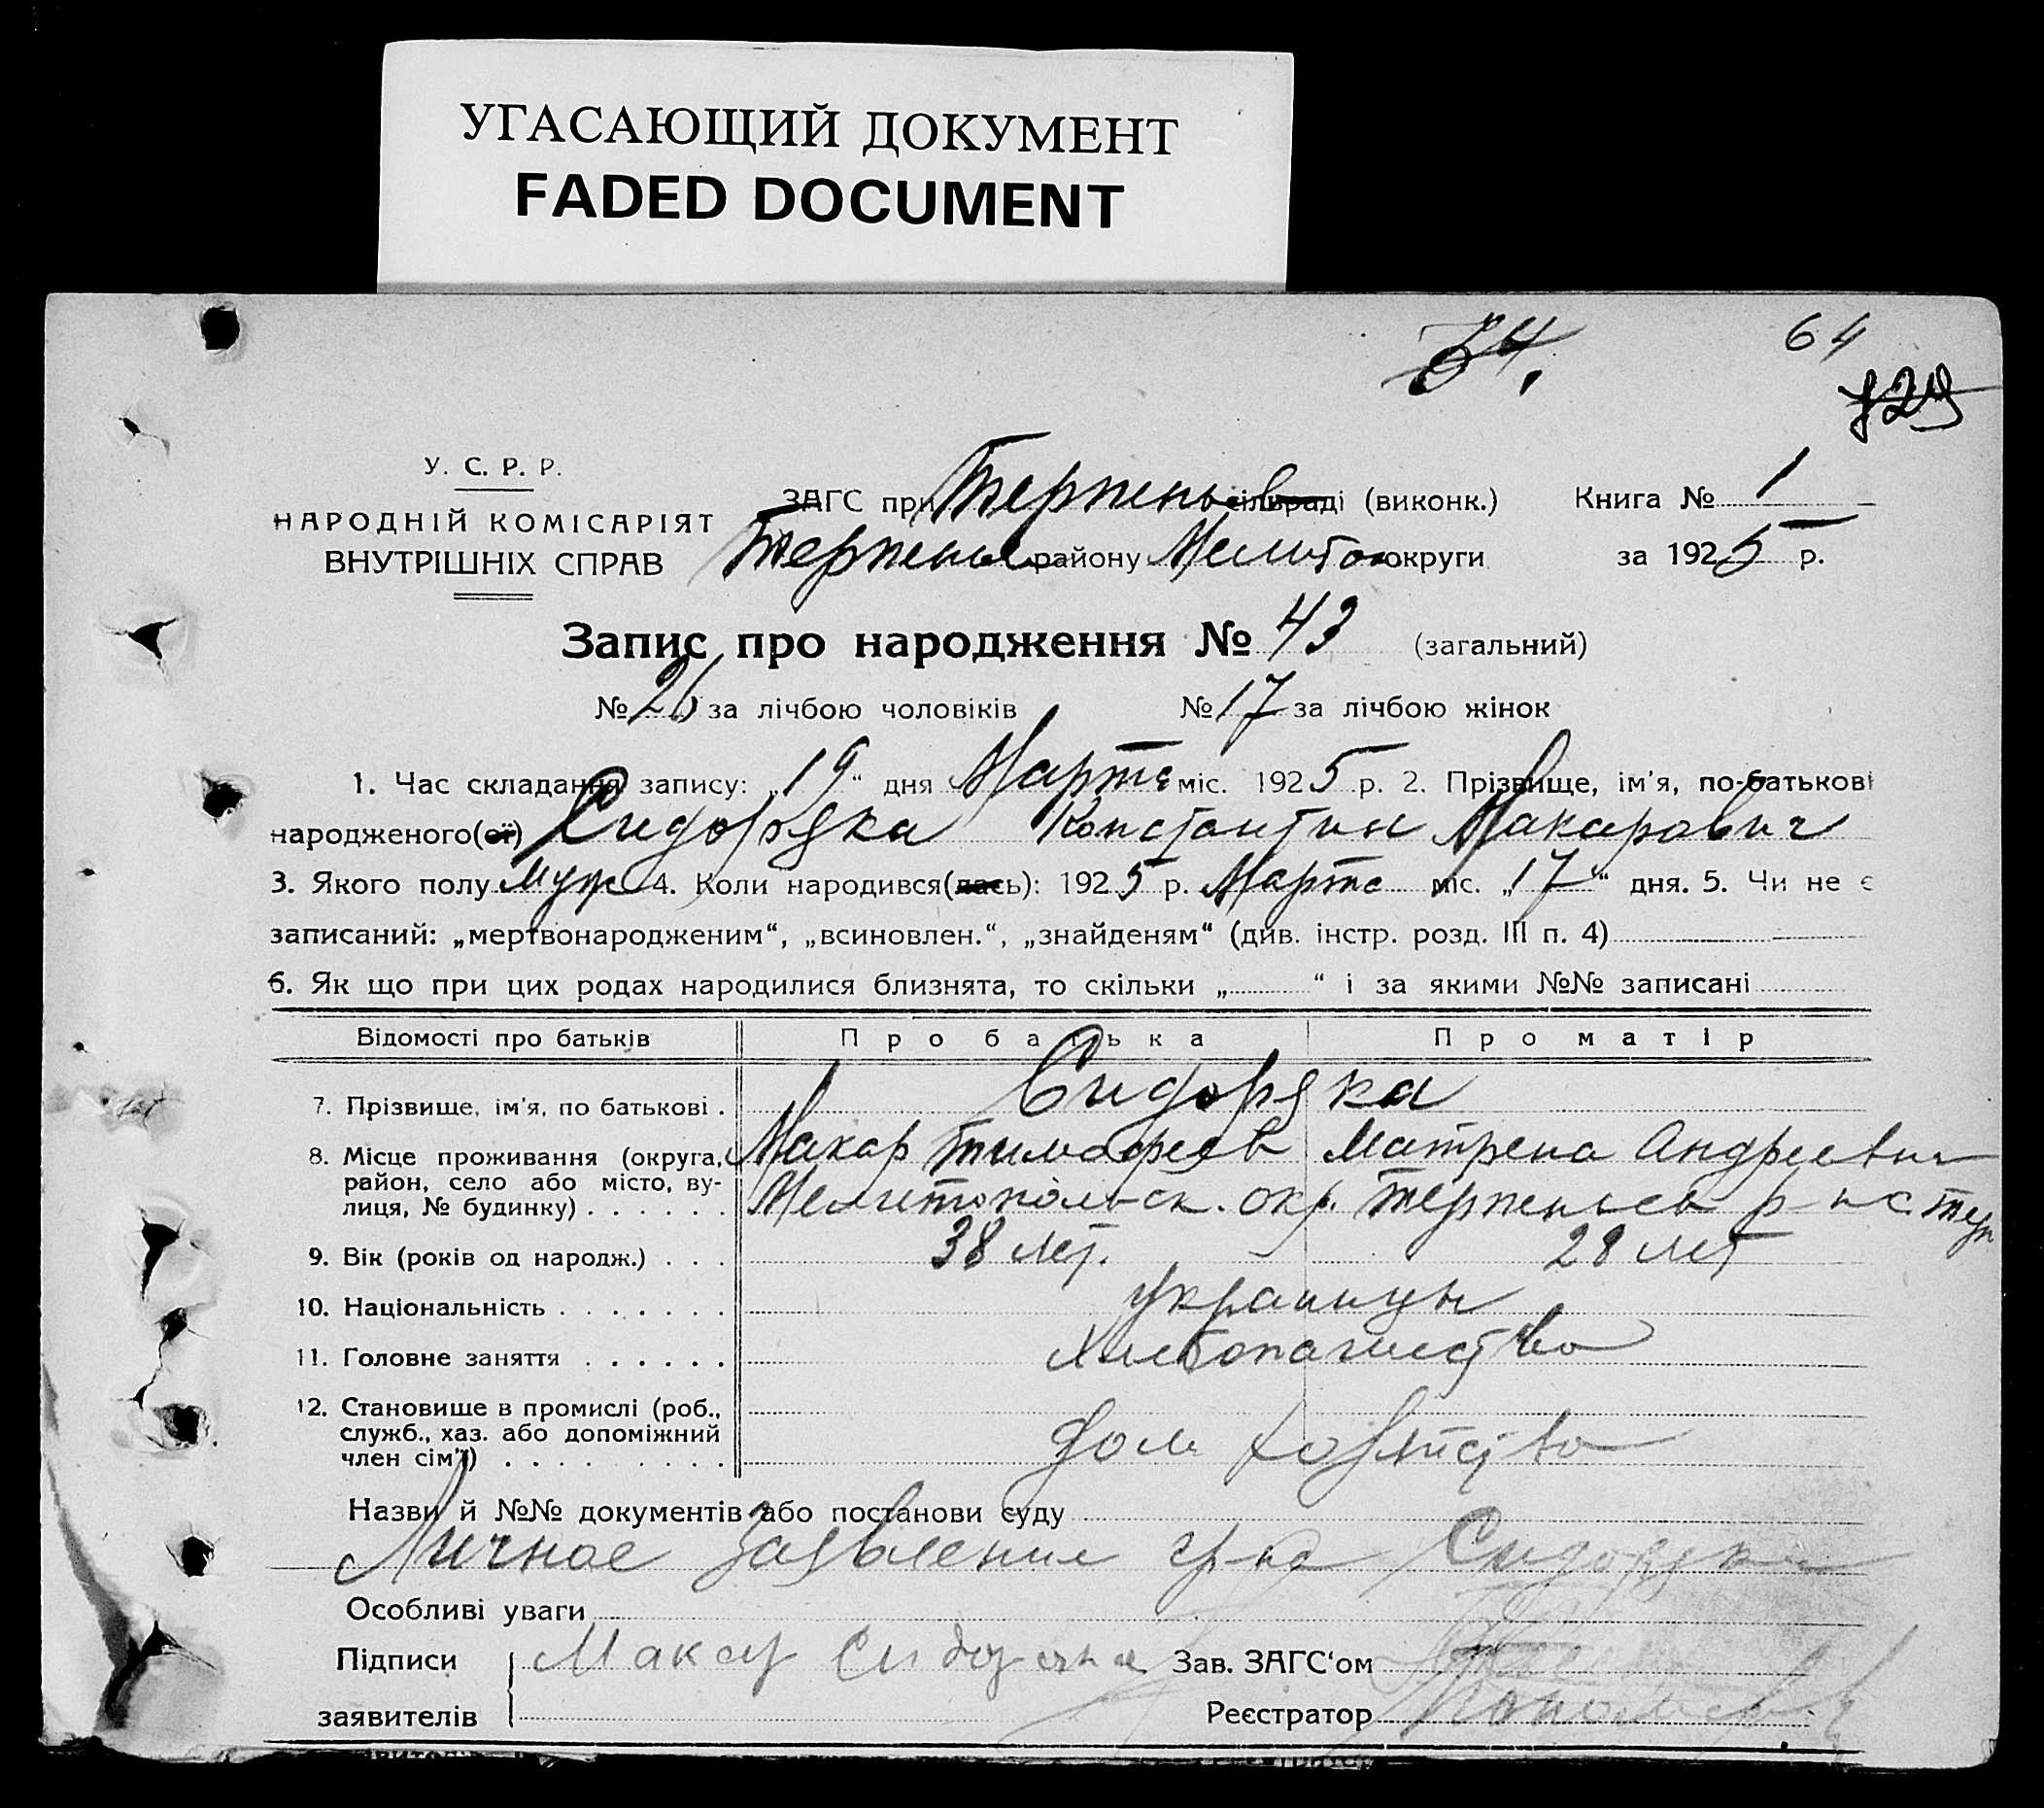 УГАСАЮЩИЙ ДОКУМЕНТ
FADED DOCUMENT
64
54.
129
У. С. Р. Р.
НАРОДНІЙ КОМІСАРІЯТ
ВНУТРІШНІХ СПРАВ
ЗАГС при Терпеньев сільраді (виконк.) Книга № 1
Терпеньев району Мелитоп округи за 1925 р.
Запис про народження № 43 (загальний)
№ 26 за лічбою чоловіків № 17 за лічбою жінок
1. Час складання запису: „19“ дня Марта міс. 1925 р. 2. Прізвище, ім'я, по-батькові
народженого(ої) Сидоряка Константин Макарович
3. Якого полу муж 4. Коли народився(лась): 1925 р. Марта міс. „17“ дня. 5. Чи не є
записаний: „мертвонародженим“, „всиновлен.“, „знайденям“ (див. інстр. розд. III п. 4)
6. Як що при цих родах народилися близнята, то скільки „ “ і за якими №№ записані
Відомості про батьків Про батька Про матір
7. Прізвище, ім'я, по батькові . Сидоряка
8. Місце проживання (округа, Макар Тимофеев Матрена Андреевна
район, село або місто, ву-
лиця, № будинку) . . . . . . Мелитопольск. окр. Терпеньев р-н с. Терп
9. Вік (років од народж.) . . . 38 лет. 28 лет
10. Національність . . . . . . . украинцы
11. Головне заняття . . . . . . Хлебопашество
12. Становище в промислі (роб.,
служб., хаз. або допоміжний
член сім'ї) . . . . . . . . . Дом хозяйство
Назви й №№ документів або постанови суду
Личное заявление гр-на Сидоряки
Особливі уваги
Підписи Макар Сидоряка Зав. ЗАГС'ом
заявителів Реєстратор